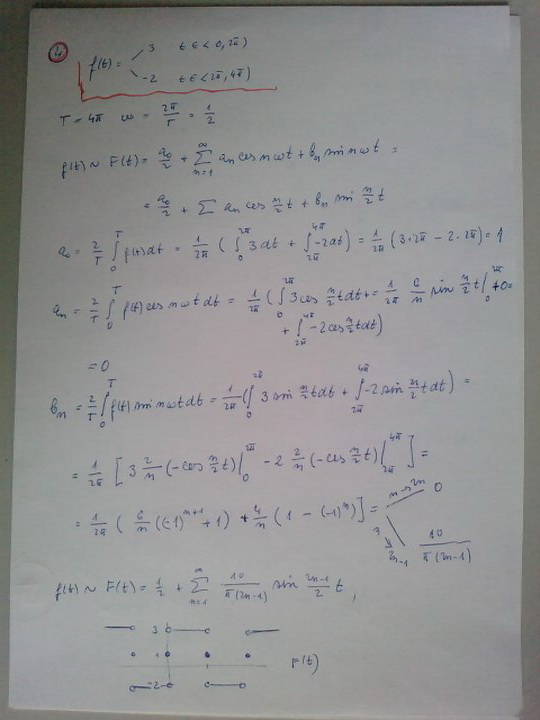 4.
f(t) = 3 t ∈ <0, 2π)
-2 t ∈ <2π, 4π)
T = 4π ω = 2π/T = 1/2
f(t) ~ F(t) = a₀/2 + ∑_{n=1}^{∞} aₙ cos nωt + bₙ sin nωt =
= a₀/2 + ∑ aₙ cos n/2 t + bₙ sin n/2 t
a₀ = 2/T ∫_0^T f(t) dt = 1/2π ( ∫_0^{2π} 3 dt + ∫_{2π}^{4π} -2 dt ) = 1/2π (3·2π - 2·2π) = 1
aₙ = 2/T ∫_0^T f(t) cos nωt dt = 1/2π ( ∫_0^{2π} 3 cos n/2 t dt + = 1/2π 6/n sin n/2 t |_0^{2π} + 0 =
+ ∫_{2π}^{4π} -2 cos n/2 t dt )
= 0
bₙ = 2/T ∫_0^T f(t) sin nωt dt = 1/2π ( ∫_0^{2π} 3 sin n/2 t dt + ∫_{2π}^{4π} -2 sin n/2 t dt ) =
= 1/2π [ 3 2/n (-cos n/2 t) |_0^{2π} - 2 2/n (-cos n/2 t) |_{2π}^{4π} ] =
= 1/2π ( 6/n ((-1)^{n+1} + 1) + 4/n (1 - (-1)^n) ] = n→2n 0
2n-1 10/π(2n-1)
f(t) ~ F(t) = 1/2 + ∑_{n=1}^{∞} 10/π(2n-1) sin 2n-1/2 t ,
3
1
F(t)
-2